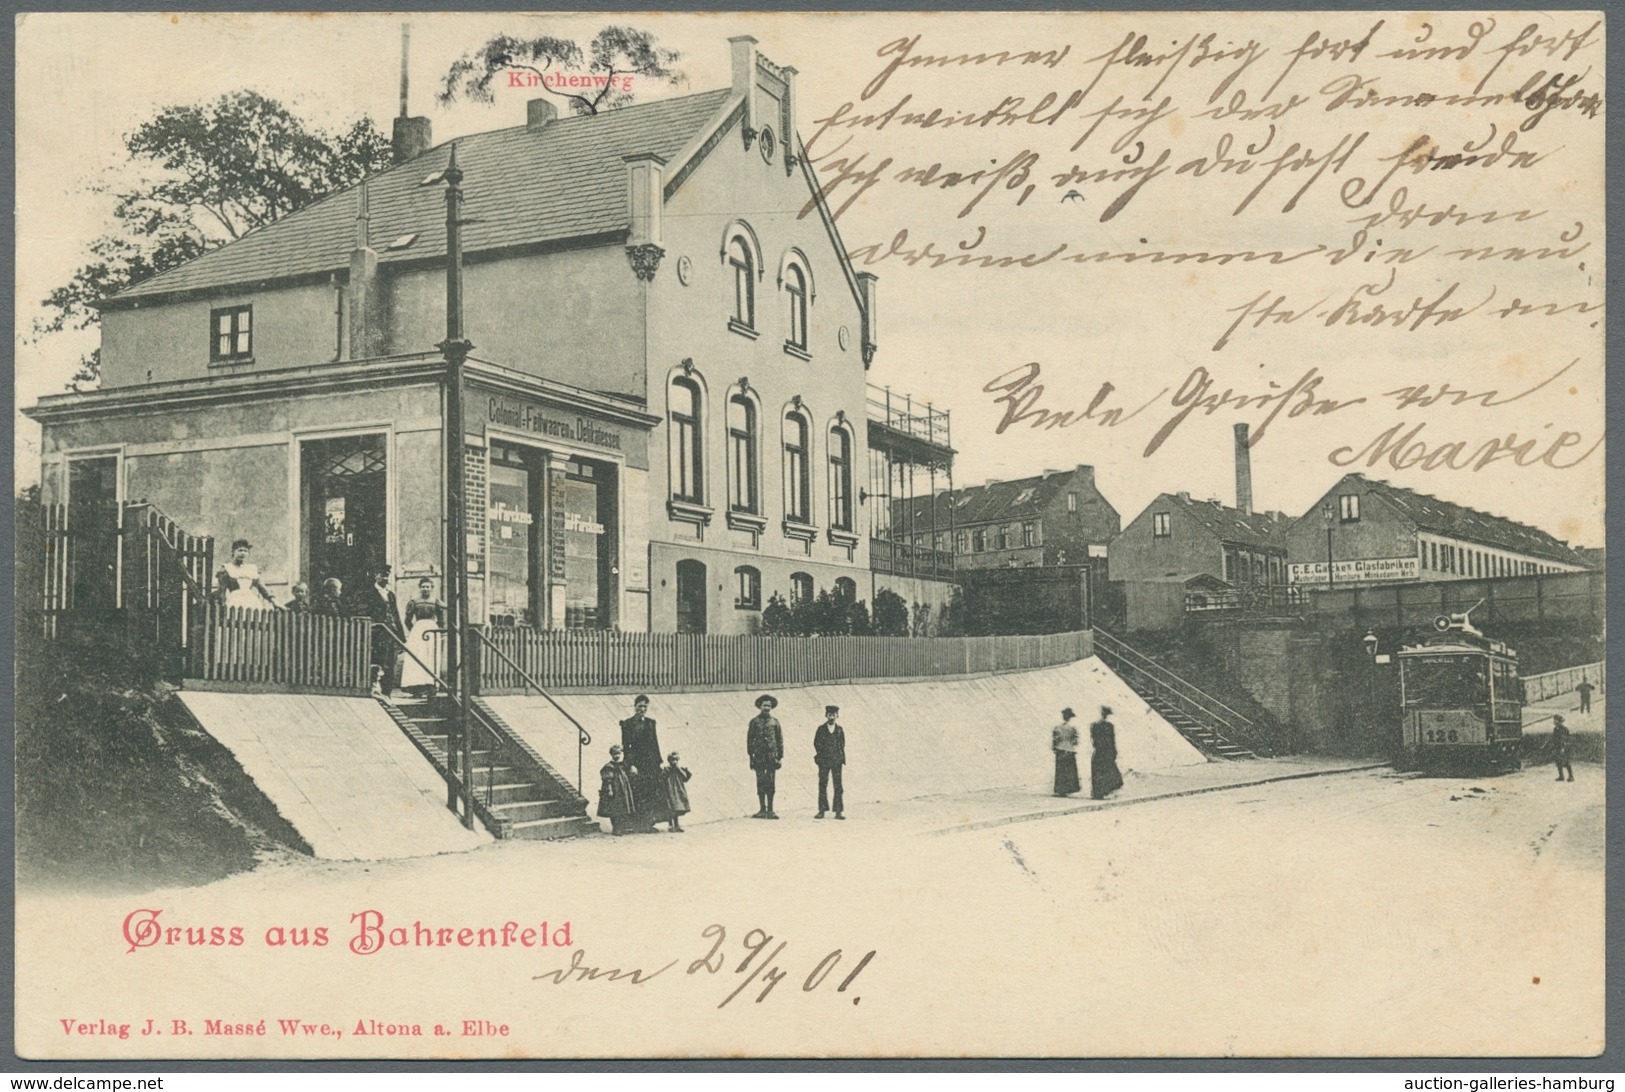 Kirchenweg
Immer fleißig fort und fort
Entwickelt sich der Sammelsport
Ich weiß, auch Du hast Freude
dran
drum nimm die neu,
ste Karte an.
Viele Grüße von
Marie
Colonial=Fettwaaren u. Delikatessen
C. E. Gätcke's Glasfabriken
Musterlager Hamburg
126
Gruss aus Bahrenfeld
den 29/7 01.
Verlag J. B. Massé Wwe., Altona a. Elbe
www.delcampe.net
auction-galleries-hamburg